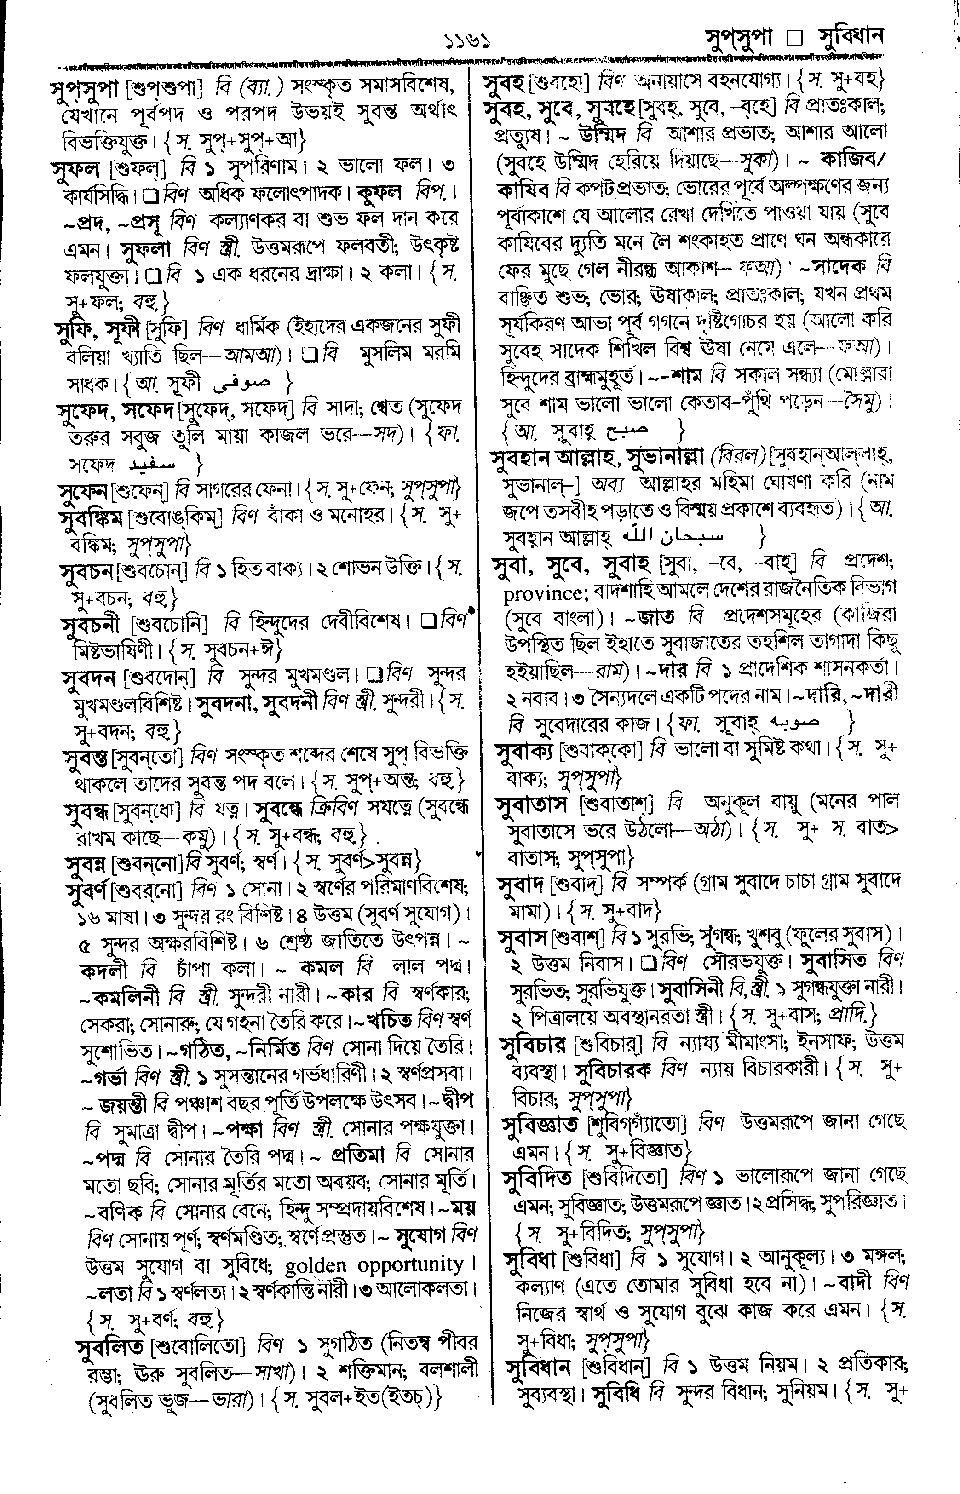 ১১৬১
সুপ্‌সুপা □ সুবিধান
সুপ্‌সুপা [শুপ্‌শুপা] বি (ব্যা.) সংস্কৃত সমাসবিশেষ,
যেখানে পূর্বপদ ও পরপদ উভয়ই সুবন্ত অর্থাৎ
বিভক্তিযুক্ত। {স. সুপ্‌+সুপ্‌+আ}
সুফল [শুফল্] বি ১ সুপরিণাম। ২ ভালো ফল। ৩
কার্যসিদ্ধি। □ বিণ অধিক ফলোৎপাদক। কুফল বিপ.।
~প্রদ, ~প্রসূ বিণ কল্যাণকর বা শুভ ফল দান করে
এমন। সুফলা বিণ স্ত্রী. উত্তমরূপে ফলবতী; উৎকৃষ্ট
ফলযুক্তা। □ বি ১ এক ধরনের দ্রাক্ষা। ২ কলা। {স.
সু+ফল; বহু}
সুফি, সূফী [সুফি] বিণ ধার্মিক (ইহাদের একজনের সুফী
বলিয়া খ্যাতি ছিল—আমআ)। □ বি মুসলিম মরমি
সাধক। {আ. সূফী صوفى}
সুফেদ, সফেদ [সুফেদ্, সফেদ্] বি সাদা; শ্বেত (সুফেদ
তরুর সবুজ তুলি মায়া কাজল ভরে—সদ)। {ফা.
সফেদ سفيد}
সুফেন [শুফেন্] বি সাগরের ফেনা। {স. সু+ফেন; সুপ্‌সুপা}
সুবঙ্কিম [শুবোঙ্‌কিম্] বিণ বাঁকা ও মনোহর। {স. সু+
বঙ্কিম; সুপ্‌সুপা}
সুবচন [শুবচোন্] বি ১ হিত বাক্য। ২ শোভন উক্তি। {স.
সু+বচন; বহু}
সুবচনী [শুবচোনি] বি হিন্দুদের দেবীবিশেষ। □ বিণ
মিষ্টভাষিণী। {স. সুবচন+ঈ}
সুবদন [শুবদোন্] বি সুন্দর মুখমণ্ডল। □ বিণ সুন্দর
মুখমণ্ডলবিশিষ্ট। সুবদনা, সুবদনী বিণ স্ত্রী. সুন্দরী। {স.
সু+বদন; বহু}
সুবন্ত [সুবন্‌তো] বিণ সংস্কৃত শব্দের শেষে সুপ্ বিভক্তি
থাকলে তাদের সুবন্ত পদ বলে। {স. সুপ্‌+অন্ত; বহু}
সুবন্ধ [সুবন্‌ধো] বি যত্ন। সুবন্ধে ক্রিবিণ সযত্নে (সুবন্ধে
রাখম কাছে—কমু)। {স. সু+বন্ধ; বহু}
সুবন্ন [শুবন্‌নো] বি সুবর্ণ; স্বর্ণ। {স. সুবর্ণ>সুবন্ন}
সুবর্ণ [শুবর্‌নো] বিণ ১ সোনা। ২ স্বর্ণের পরিমাণবিশেষ;
১৬ মাষা। ৩ সুন্দর রং বিশিষ্ট। ৪ উত্তম (সুবর্ণ সুযোগ)।
৫ সুন্দর অক্ষরবিশিষ্ট। ৬ শ্রেষ্ঠ জাতিতে উৎপন্ন। ~
কদলী বি চাঁপা কলা। ~ কমল বি লাল পদ্ম।
~কমলিনী বি স্ত্রী. সুন্দরী নারী। ~কার বি স্বর্ণকার;
সেকরা; সোনারু; যে গহনা তৈরি করে। ~খচিত বিণ স্বর্ণ
সুশোভিত। ~গঠিত, ~নির্মিত বিণ সোনা দিয়ে তৈরি।
~গর্ভা বিণ স্ত্রী. ১ সুসন্তানের গর্ভধারিণী। ২ স্বর্ণপ্রসবা।
~ জয়ন্তী বি পঞ্চাশ বছর পূর্তি উপলক্ষে উৎসব। ~দ্বীপ
বি সুমাত্রা দ্বীপ। ~পক্ষা বিণ স্ত্রী. সোনার পক্ষযুক্তা।
~পদ্ম বি সোনার তৈরি পদ্ম। ~ প্রতিমা বি সোনার
মতো ছবি; সোনার মূর্তির মতো অবয়ব; সোনার মূর্তি।
~বণিক বি সোনার বেনে; হিন্দু সম্প্রদায়বিশেষ। ~ময়
বিণ সোনায় পূর্ণ; স্বর্ণমণ্ডিত; স্বর্ণে প্রস্তুত। ~ সুযোগ বিণ
উত্তম সুযোগ বা সুবিধে; golden opportunity।
~লতা বি ১ স্বর্ণলতা। ২ স্বর্ণকান্তি নারী। ৩ আলোকলতা।
{স. সু+বর্ণ; বহু}
সুবলিত [শুবোলিতো] বিণ ১ সুগঠিত (নিতম্ব পীবর
রম্ভা; ঊরু সুবলিত—সাখা)। ২ শক্তিমান; বলশালী
(সুবলিত ভূজ—ভারা)। {স. সুবল+ইত(ইতচ্)}
সুবহ [শুবহো] বিণ অনায়াসে বহনযোগ্য। {স. সু+বহ}
সুবহ, সুবে, সুবহে [সুবহ্, সুবে, -বহে] বি প্রাতঃকাল;
প্রত্যুষ। ~ উম্মিদ বি আশার প্রভাত; আশার আলো
(সুবহে উম্মিদ হেরিয়ে দিয়াছে—সুকা)। ~ কাজিব/
কাযিব বি কপট প্রভাত; ভোরের পূর্বে অল্পক্ষণের জন্য
পূর্বাকাশে যে আলোর রেখা দেখিতে পাওয়া যায় (সুবে
কাযিবের দ্যুতি মনে লৈ শংকাহত প্রাণে ঘন অন্ধকারে
ফের মুছে গেল নীরন্ধ্র আকাশ—ফআ) ~সাদেক বি
বাঞ্ছিত শুভ; ভোর; ঊষাকাল; প্রাতঃকাল; যখন প্রথম
সূর্যকিরণ আভা পূর্ব গগনে দৃষ্টিগোচর হয় (আলো করি
সুবেহ সাদেক শিখিল বিশ্ব ঊষা নেমে এলে—ফআ)।
হিন্দুদের ব্রাহ্মমুহূর্ত। ~-শাম বি সকাল সন্ধ্যা (মোল্লারা
সুবে শাম ভালো ভালো কেতাব-পুঁথি পড়েন—সৈমু)।
{আ. সুবাহ্ صبح}
সুবহান আল্লাহ, সুভানাল্লা (বিরল) [সুবহান্‌আল্‌লাহ্,
সুভানাল্-] অব্য আল্লাহর মহিমা ঘোষণা করি (নাম
জপে তসবীহ পড়াতে ও বিস্ময় প্রকাশে ব্যবহৃত)। {আ.
সুবহান আল্লাহ্ سبحان الله}
সুবা, সুবে, সুবাহ [সুবা, -বে, -বাহ্] বি প্রদেশ;
province; বাদশাহি আমলে দেশের রাজনৈতিক বিভাগ
(সুবে বাংলা)। ~জাত বি প্রদেশসমূহের (কাজিরা
উপস্থিত ছিল ইহাতে সুবাজাতের তহশিল তাগাদা কিছু
হইয়াছিল—রাম)। ~দার বি ১ প্রাদেশিক শাসনকর্তা।
২ নবাব। ৩ সৈন্যদলে একটি পদের নাম। ~দারি, ~দারী
বি সুবেদারের কাজ। {ফা. সুবাহ্ صوبه}
সুবাক্য [শুবাক্‌কো] বি ভালো বা সুমিষ্ট কথা। {স. সু+
বাক্য; সুপ্‌সুপা}
সুবাতাস [শুবাতাশ্] বি অনুকূল বায়ু (মনের পাল
সুবাতাসে ভরে উঠলো—অঠা)। {স. সু+ স. বাত>
বাতাস; সুপ্‌সুপা}
সুবাদ [শুবাদ্] বি সম্পর্ক (গ্রাম সুবাদে চাচা গ্রাম সুবাদে
মামা)। {স. সু+বাদ}
সুবাস [শুবাশ্] বি ১ সুরভি; সুগন্ধ; খুশবু (ফুলের সুবাস)।
২ উত্তম নিবাস। □ বিণ সৌরভযুক্ত। সুবাসিত বিণ
সুরভিত; সুরভিযুক্ত। সুবাসিনী বি, স্ত্রী. ১ সুগন্ধযুক্তা নারী।
২ পিত্রালয়ে অবস্থানরতা স্ত্রী। {স. সু+বাস; প্রাদি.}
সুবিচার [শুবিচার্] বি ন্যায্য মীমাংসা; ইনসাফ; উত্তম
ব্যবস্থা। সুবিচারক বিণ ন্যায় বিচারকারী। {স. সু+
বিচার; সুপ্‌সুপা}
সুবিজ্ঞাত [শুবিগ্‌গ্যাঁতো] বিণ উত্তমরূপে জানা গেছে
এমন। {স. সু+বিজ্ঞাত}
সুবিদিত [শুবিদিতো] বিণ ১ ভালোরূপে জানা গেছে
এমন; সুবিজ্ঞাত; উত্তমরূপে জ্ঞাত। ২ প্রসিদ্ধ; সুপরিজ্ঞাত।
{স. সু+বিদিত; সুপ্‌সুপা}
সুবিধা [শুবিধা] বি ১ সুযোগ। ২ আনুকূল্য। ৩ মঙ্গল;
কল্যাণ (এতে তোমার সুবিধা হবে না)। ~বাদী বিণ
নিজের স্বার্থ ও সুযোগ বুঝে কাজ করে এমন। {স.
সু+বিধা; সুপ্‌সুপা}
সুবিধান [শুবিধান্] বি ১ উত্তম নিয়ম। ২ প্রতিকার;
সুব্যবস্থা। সুবিধি বি সুন্দর বিধান; সুনিয়ম। {স. সু+